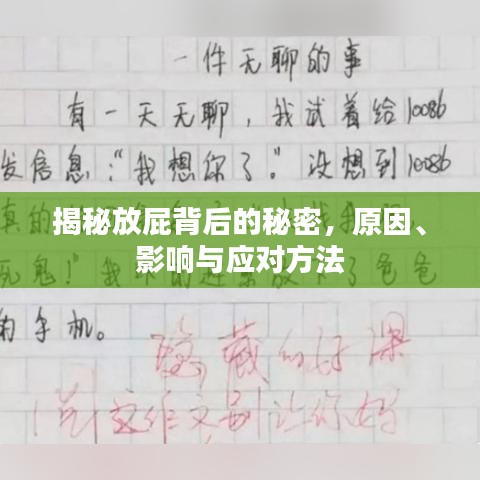 一件无聊的事
有一天无聊，我试着给10086
发信息："我想你了。"没想到10086
真的
揭秘放屁背后的秘密，原因、
影响与应对方法
死鬼！"我
了爸爸
的手机。
隐藏的好深